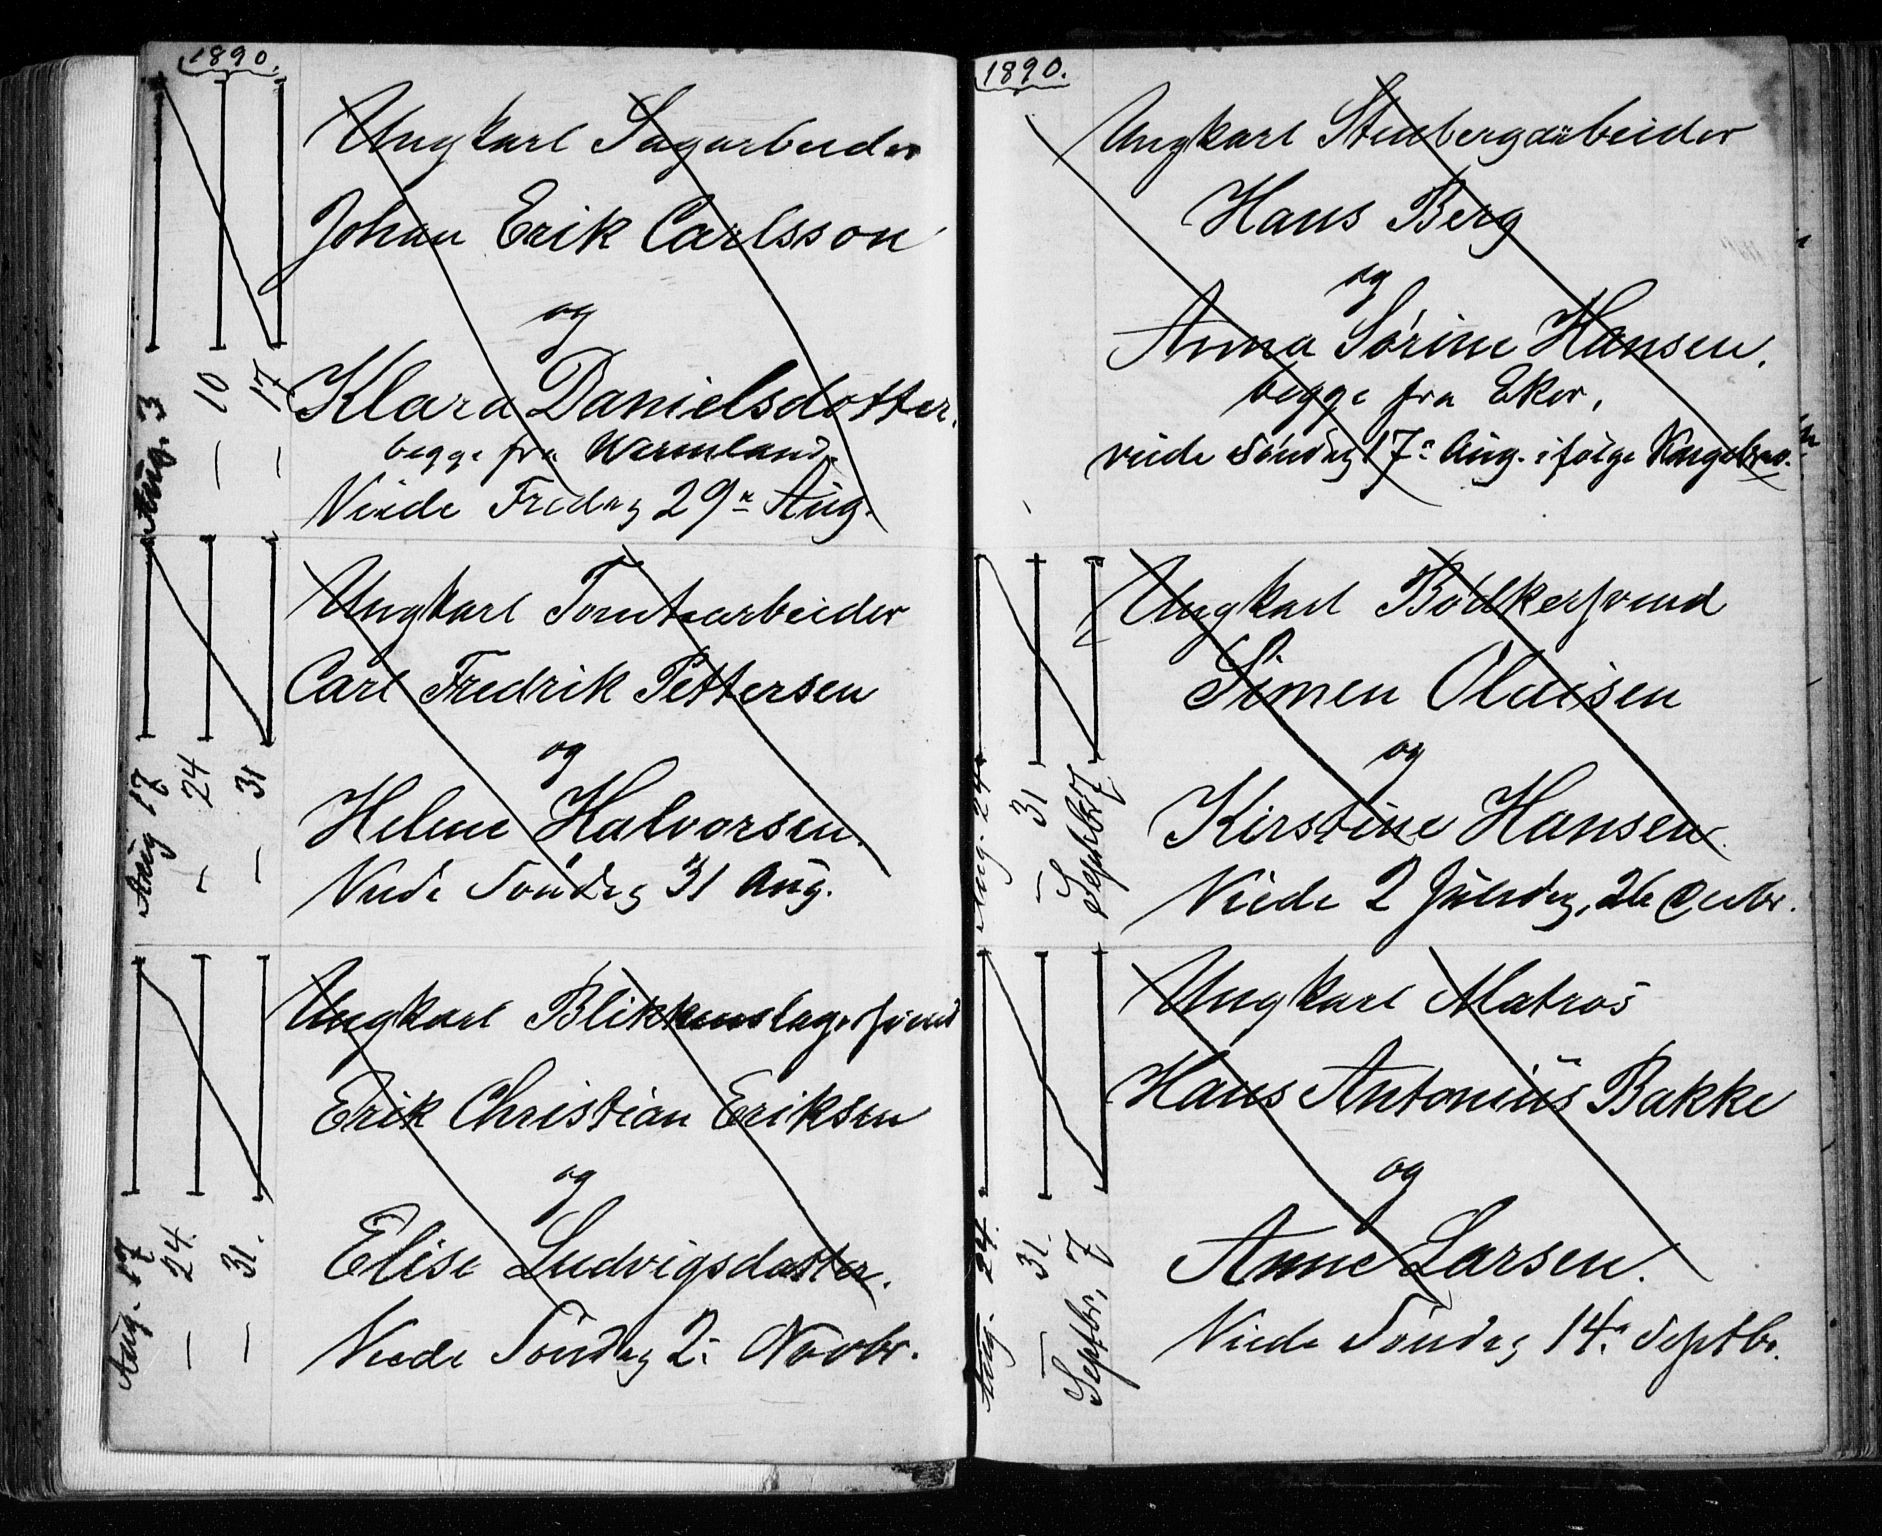 1890.
Aug. 3
— 10
— 17
Ungkarl Sagarbeider
Johan Erik Carlsson
og
Klara Danielsdotter.
begge fra Warmland.
Viede Fredag 29n Aug.
Aug 17
— 24
— 31
Ungkarl Tomtearbeider
Carl Fredrik Pettersen
og
Helene Halvorsen.
Viede Søndag 31 Aug.
Aug. 17
— 24.
— 31.
Ungkarl Blikkenslagersvend
Erik Christian Eriksen
og
Elise Ludvigsdatter.
Viede Søndag 2: Novbr.
1890.
Ungkarl Stenbergarbeider
Hans Berg
og
Anna Sørine Hansen.
begge fra Eker,
viede Søndag 17: Aug. ifølge Kongebrev.
Aug. 24
— 31
Septbr 7
Ungkarl Bødkersvend
Simen Olaisen
og
Kirstine Hansen.
Viede 2 Juledag, 26 Decbr.
Aug. 24.
— 31.
Septbr, 7
Ungkarl Matros
Hans Antonius Bakke
og
Anne Larsen.
Viede Søndag 14: Septbr.